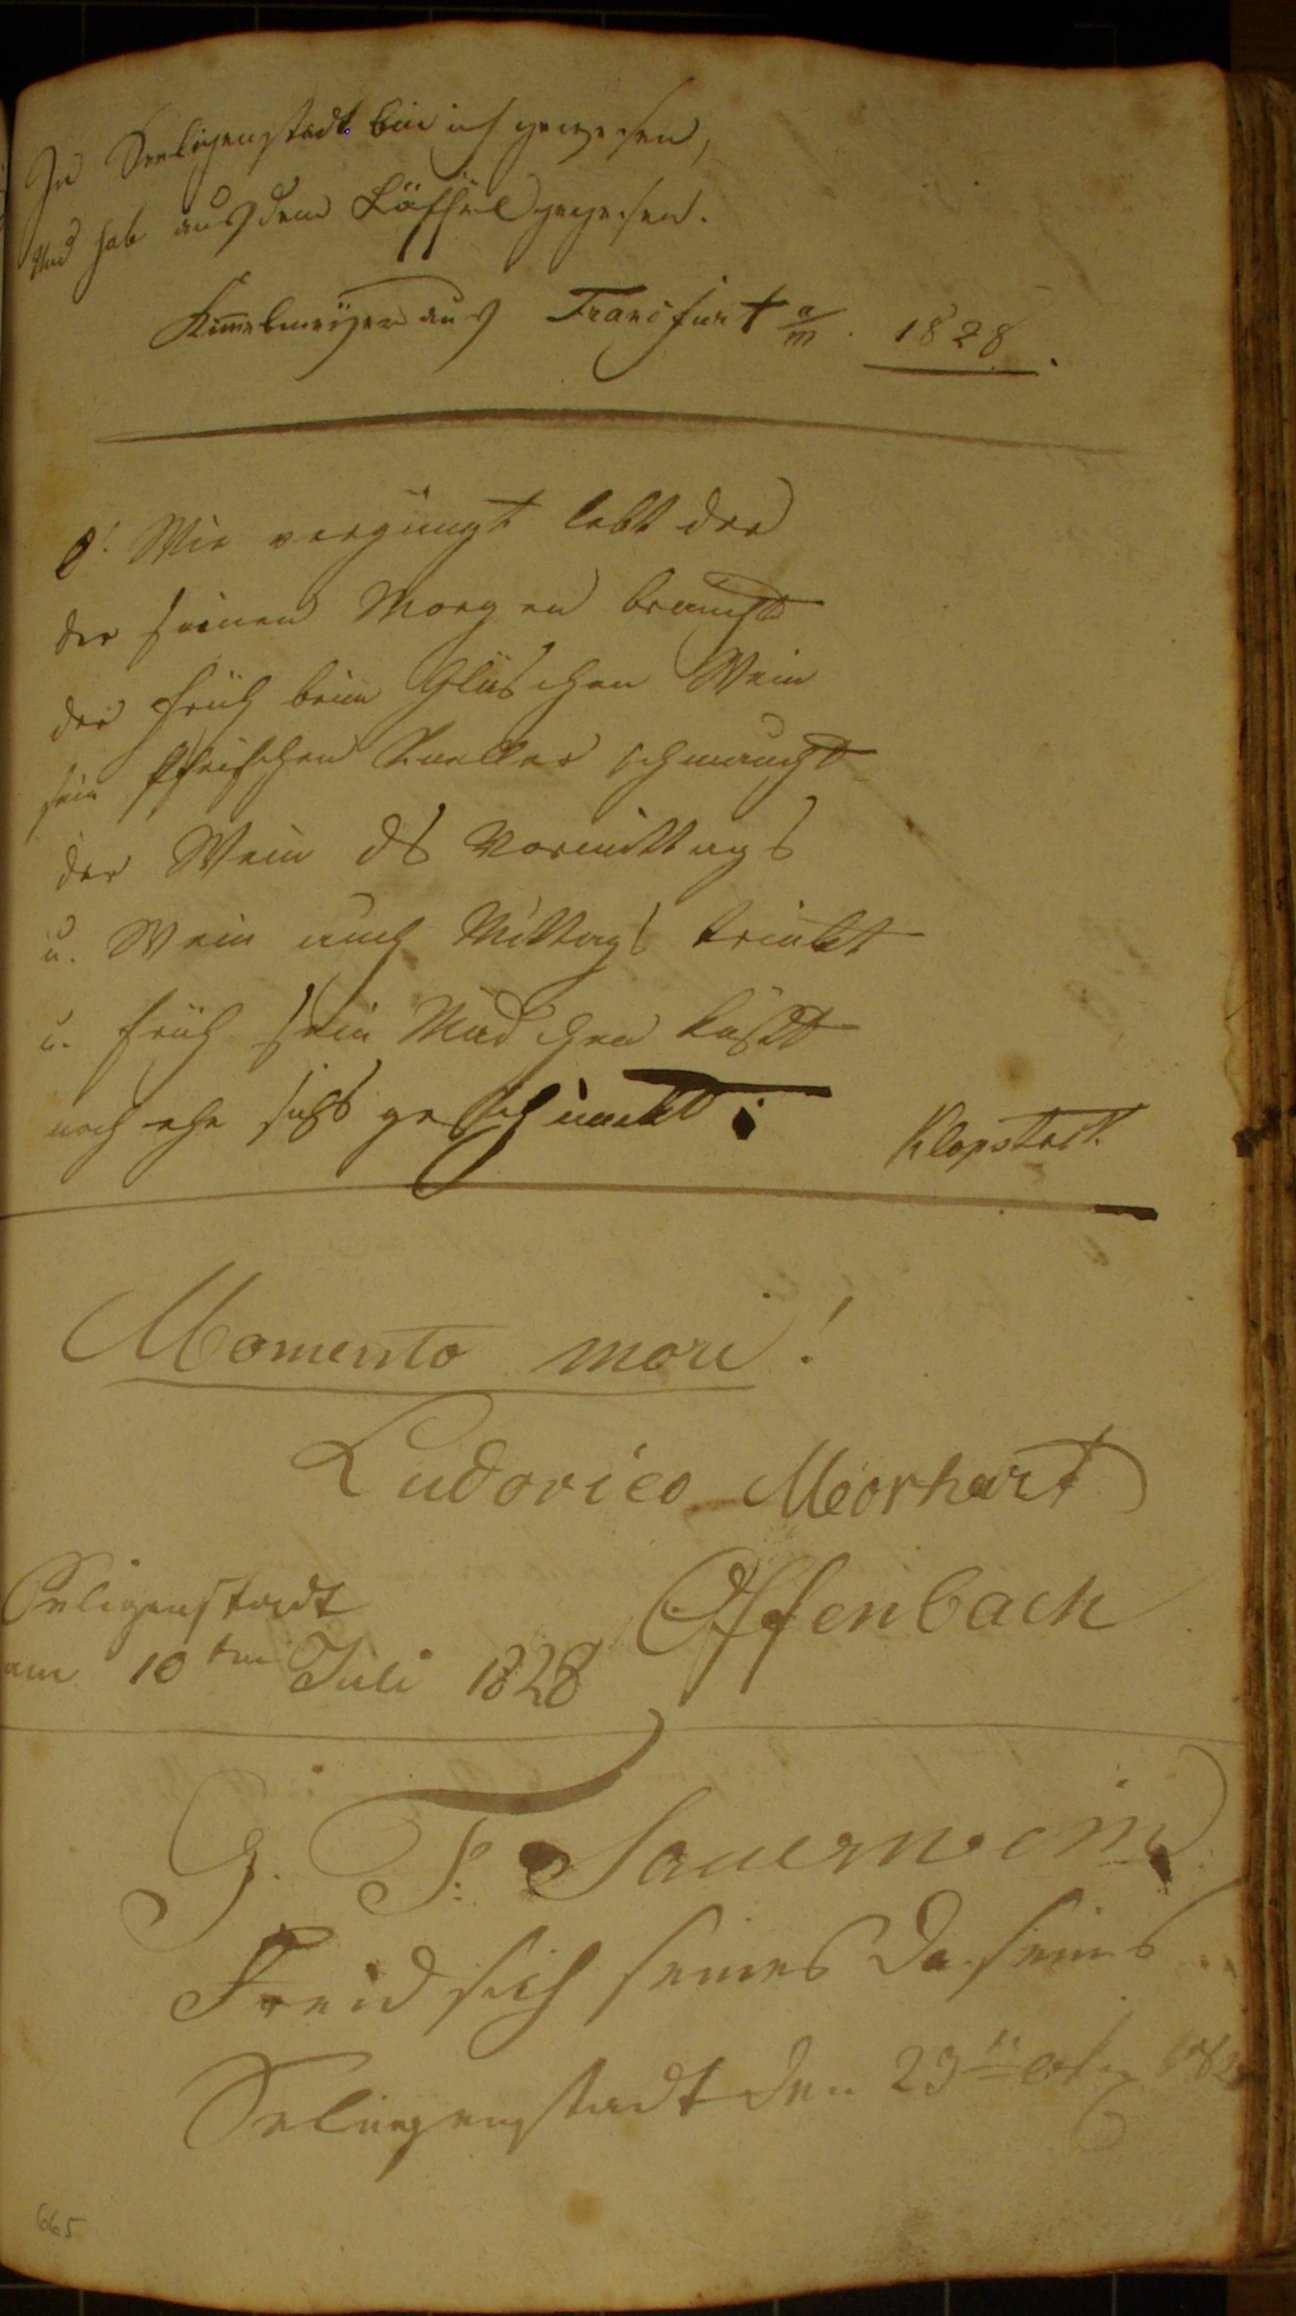 In Seeligenstadt bin ich gewesen,
Und hab aus dem Löffel gegesen.
Kimmelmeÿer aus Francfurt a/m. 1828.
O! Wie vergüngt lebt der
der seinen Morgen braucht
der früh beim Gläschen Wein
sein Pfeifchen Kneller schmaucht
der Wein ds Vormittags
u. Wein auch Mittags trinkt
u. früh sein Mädchen küßt
noch ehe sichs geschminkt.
Klopstock.
Momento mori!
Ludovico Meorhart
Offenbach
Seligenstadt
am 10ten Juli 1828
G. F. Sauernheim
Freid sich seines Daseins
Seligenstadt den 23t
665